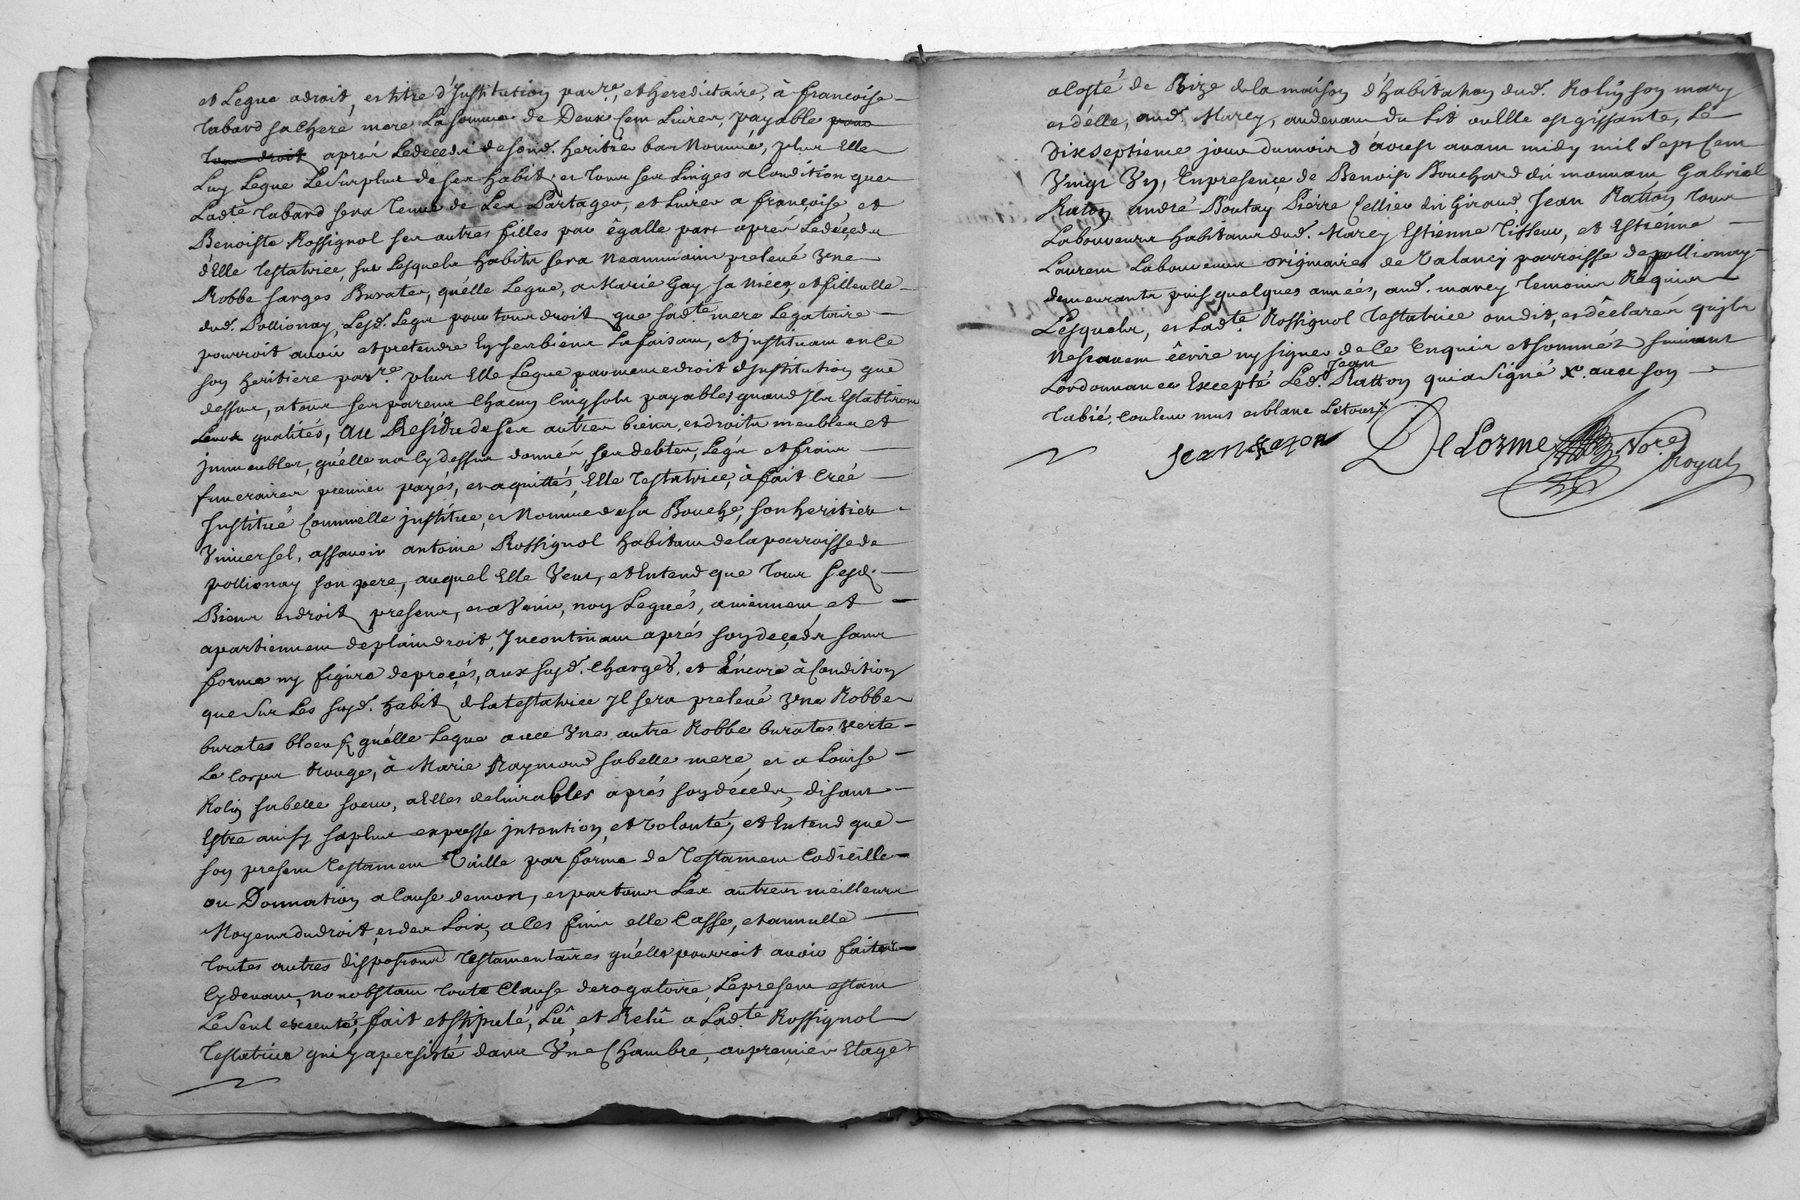 et Legue adroit, et titre d'Institution par.re, et hereditaire, à francoise
Tabard sa chere mere La somme de Deux Cent Livres, payable pour
tout droit après Ledeçedz de sond. heritier bas Nommé, plus Elle
Luy Legue Le Surplus de ses habits et tous ses Linges a Condition que
Lad.te Tabard sera Tenue de Les Partager, et Livrer a françoise et
Benoiste Rossignol ses autres filles par égalle part après Ledéçedz
d'Elle Testatrice, sur Lesquels habits sera Neanmoins prelevé Vne
Robbe sarges Buratee, qu'elle Legue, a Marie Gay sa niéce, et filleulle
dud. Pollionay, Lesd. Legs pour tous droits que sad.te mere Legataire
pourroit avoir et pretendre En ses biens La faisant, et jnstituant en Ce
son heritiere par.re. plus Elle Legue par meme droit d'jnstitution que
dessus, a tous ses parens Chacun Cinq sols payables quand Ils Establiront
Leurs qualités, Au Residu de ses autres biens, et droits meubles et
jmmeubles, qu'elle na Cy dessus donnés, ses debtes, Legs et frais
funeraires premier payés, et aquittés, Elle Testatrice, à fait Creé
Institué Comm'elle jnstitue, et Nomme de sa Bouche, son heritier
Vniversel, assavoir antoine Rossignol habitant de la parroisse de
pollionay son pere, auquel Elle Veut, et Entend que Tous Sesd.
Biens et droits presens, et a Venir, non Legués, aviennent, et
apartiennent de plain droit, Jncontinant aprés son deçedz sans
forme ny figure de proçés, aux susd. charges, et Encore à Condition
que Sur Les susd. habits de la testatrice Jl sera prelevé Vne Robbe
burates bleus qu'elle Legue avec Vne autre Robbe burates Verte
Le Corps Rouge, à Marie Raymond sa belle mere, et a Louise
Rolin sa belle soeur, a Elles delivrables aprés son déceds, disant
Estre ainsy sa plus expresse jntention, et Volonté, et Entend que
son present Testament Vaille par forme de Testament Codicille
ou Donnation a Cause de mort, et par tous Les autres meilleurs
Moyens du droit, et des Loix, a Ces fins elle Casse, et annulle
Toutes autres dispositions Testamentaires qu'elle pourroit avoir faites
Cydevant, nonobstant toute Clause derogatoire, Le present estant
Le Seul executé, fait et stipulé, Lû, et Relû a Lad.te Rossignol
Testatrice qui y a persisté dans Vne Chambre, au premier Etage
a Costé de Bize de la maison d'habitation dud. Rolin son mary
et d'elle, aud. Marcy, audevant du Lit ou Elle est gissante, Le
Dixseptieme jour du mois d'áoust avant midy mil Sept Cent
Vingt Vn, En presençe de Benoist Bouchard du monnant Gabriel
Raton andré Boutay Piérre Cellier du Giraud, Jean Ratton Tous
Laboureurs habitans dud. Marcy Estienne Tisseur, et Estienne
Laurent Laboureurs originaires de Valancy parroisse de pollionay
demeurants puis quelques années, aud. marcy Temoins Requis
Lesquels, et Lad.te Rossignol Testatrice ont dit, et déclarén qu'ils
Ne scavent écrire ny signer de Ce Enquis et sommés suivant
Lordonnance Excepté Led. Jean Ratton qui a Signé X. avec son
Tabié, Couleur mus et blanc Letour X
Jean Raton De Lorme No.re
Royal